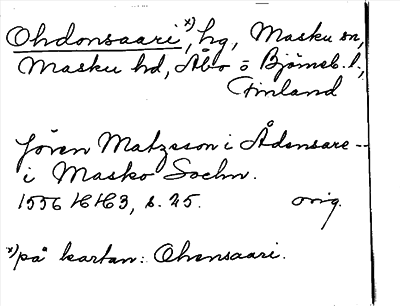 Ohdonsaari x), hg, Masku sn,
Masku hd, Åbo o Björneb. l.,
Finland
Jören Matzsson i Ådensare --
i Masko Sochn.
1556 HH3, s. 25. orig.
x) på kartan: Ohensaari.